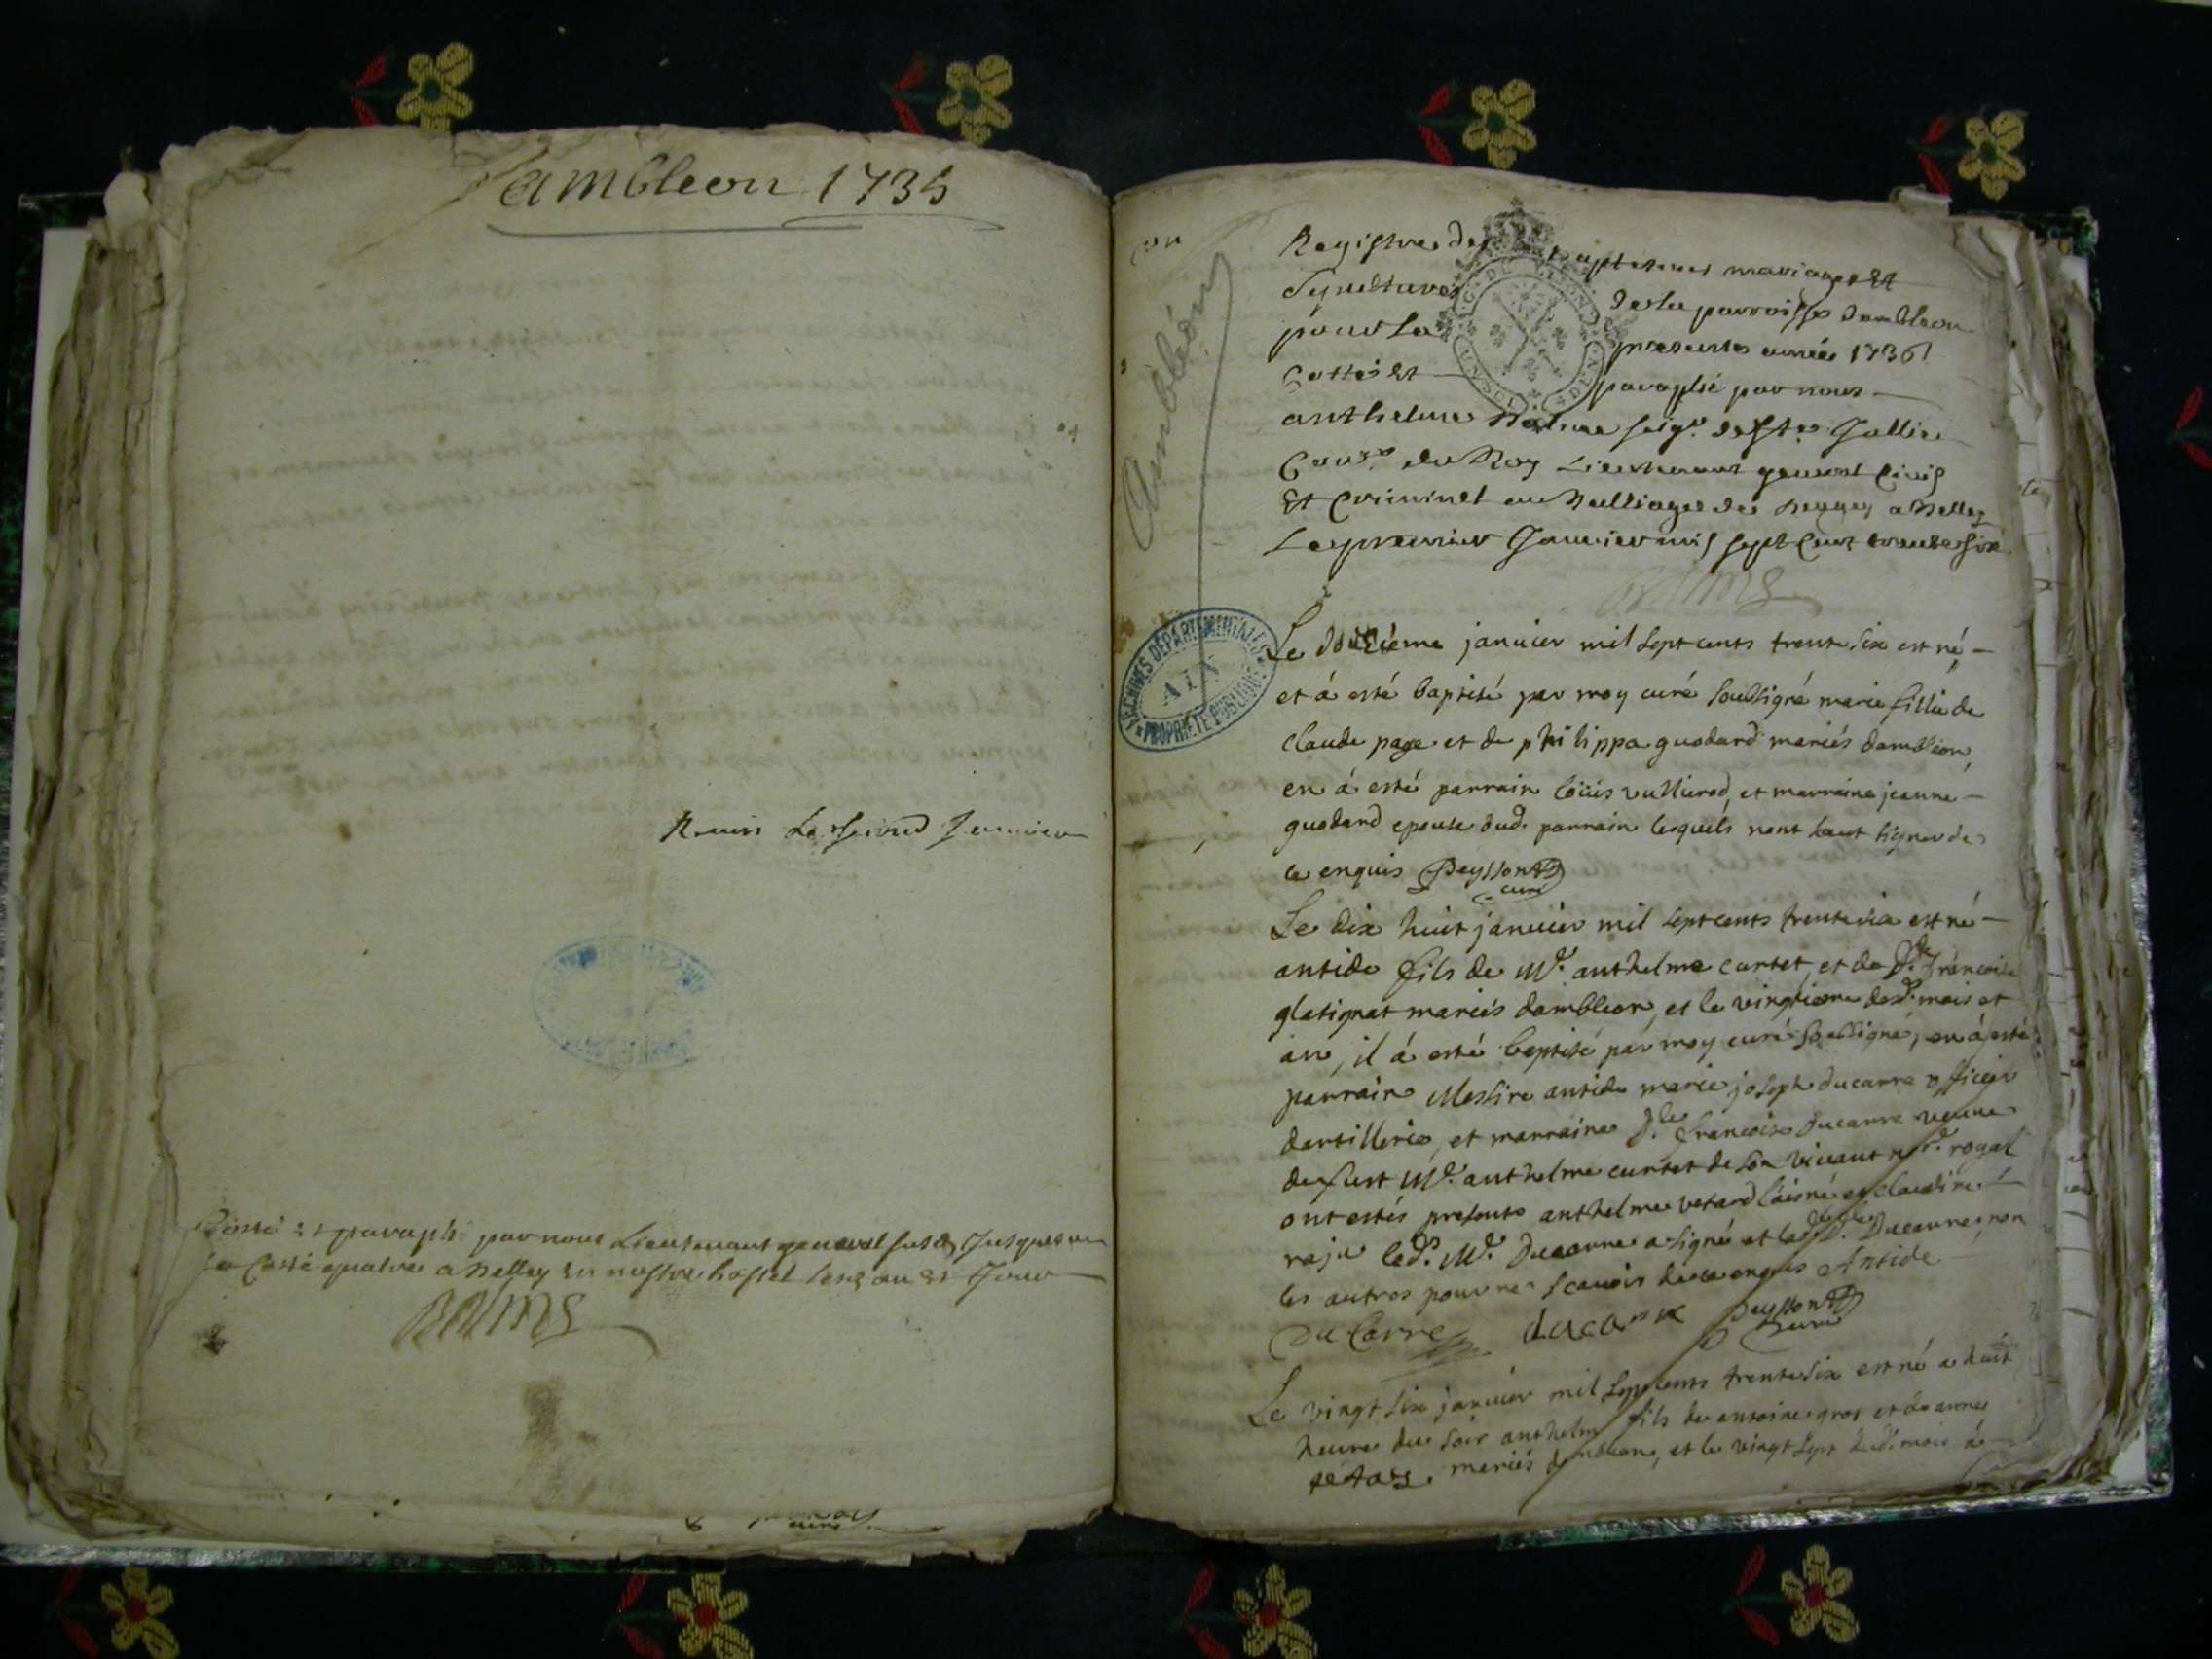 Dambleon 1735
Remis le second Janvier
Cotté et paraphé par nous Lieutenant general jusques au
costé quatre a Belley en nostre hostel les an et Jour
BALME
Ambléon
ARCHIVES DÉPARTEMENTALES
AIN
PROPRIÉTÉ PUBLIQUE
Registre des baptesmes mariages et
Sepultures de la parroisse dambleon
pour la presente année 1736
Cotté et paraphé par nous
G. DE LION
UN SOL 4 DEN.
anthelme Balme seigr. de Ste. Jullie
Consr. du Roy Lieutenant general Civil
et Criminel au Balliage de beugey a Belley
Le premier Janvier mil sept cent trente six
BALME
Le douzième janvier mil sept cents trente six est né
et á esté baptisé par moy curé soubsigné marie fillie de
claude page et de philippa guodard mariés dambleon,
en á esté parrain loüis vullierod, et marraine jeanne
guodard epouse dud. parrain lesquels nont sceut signer de
ce enquis Peysson
curé
Le dix huit janvier mil sept cents trente six est né
antide fils de Mr. anthelme curtet, et de Dlle. francoise
glatignat mariés dambleon, et le vingtième dud. mois et
an, il á esté baptisé par moy curé soubsigné, en á esté
parrain Messire antide marie joseph ducarre officier
dartillerie, et marraine Dlle. francoise Ducarre veuve
de fust Mr. anthelme curtet de son vivant nre. royal
ont estés presents anthelme vetard láisné et claudine
raju led. Mr. Ducarre a signé et lad. Dlle. Ducarre, non
les autres pour ne scavoir de ce enquis Antide
Du Carre ducarre Peysson
curé
Le vingt six janvier mil sept cents trente six est né a huit
heure du soir anthelme fils de antoine gros et de anne
mariés dambleon, et le vingt sept dud. mois á